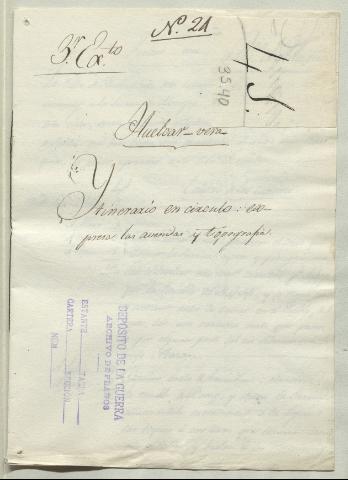 Nº 21
3.r Ex.to
4 S.
3540
Huelcar-vera
Ytinerario en circulo: ex-
presa las avenidas y topografia.
DEPÓSITO DE LA GUERRA
ARCHIVO DE PLANOS
ESTANTE TABLA
CARTERA SECCIÓN
NÚM.